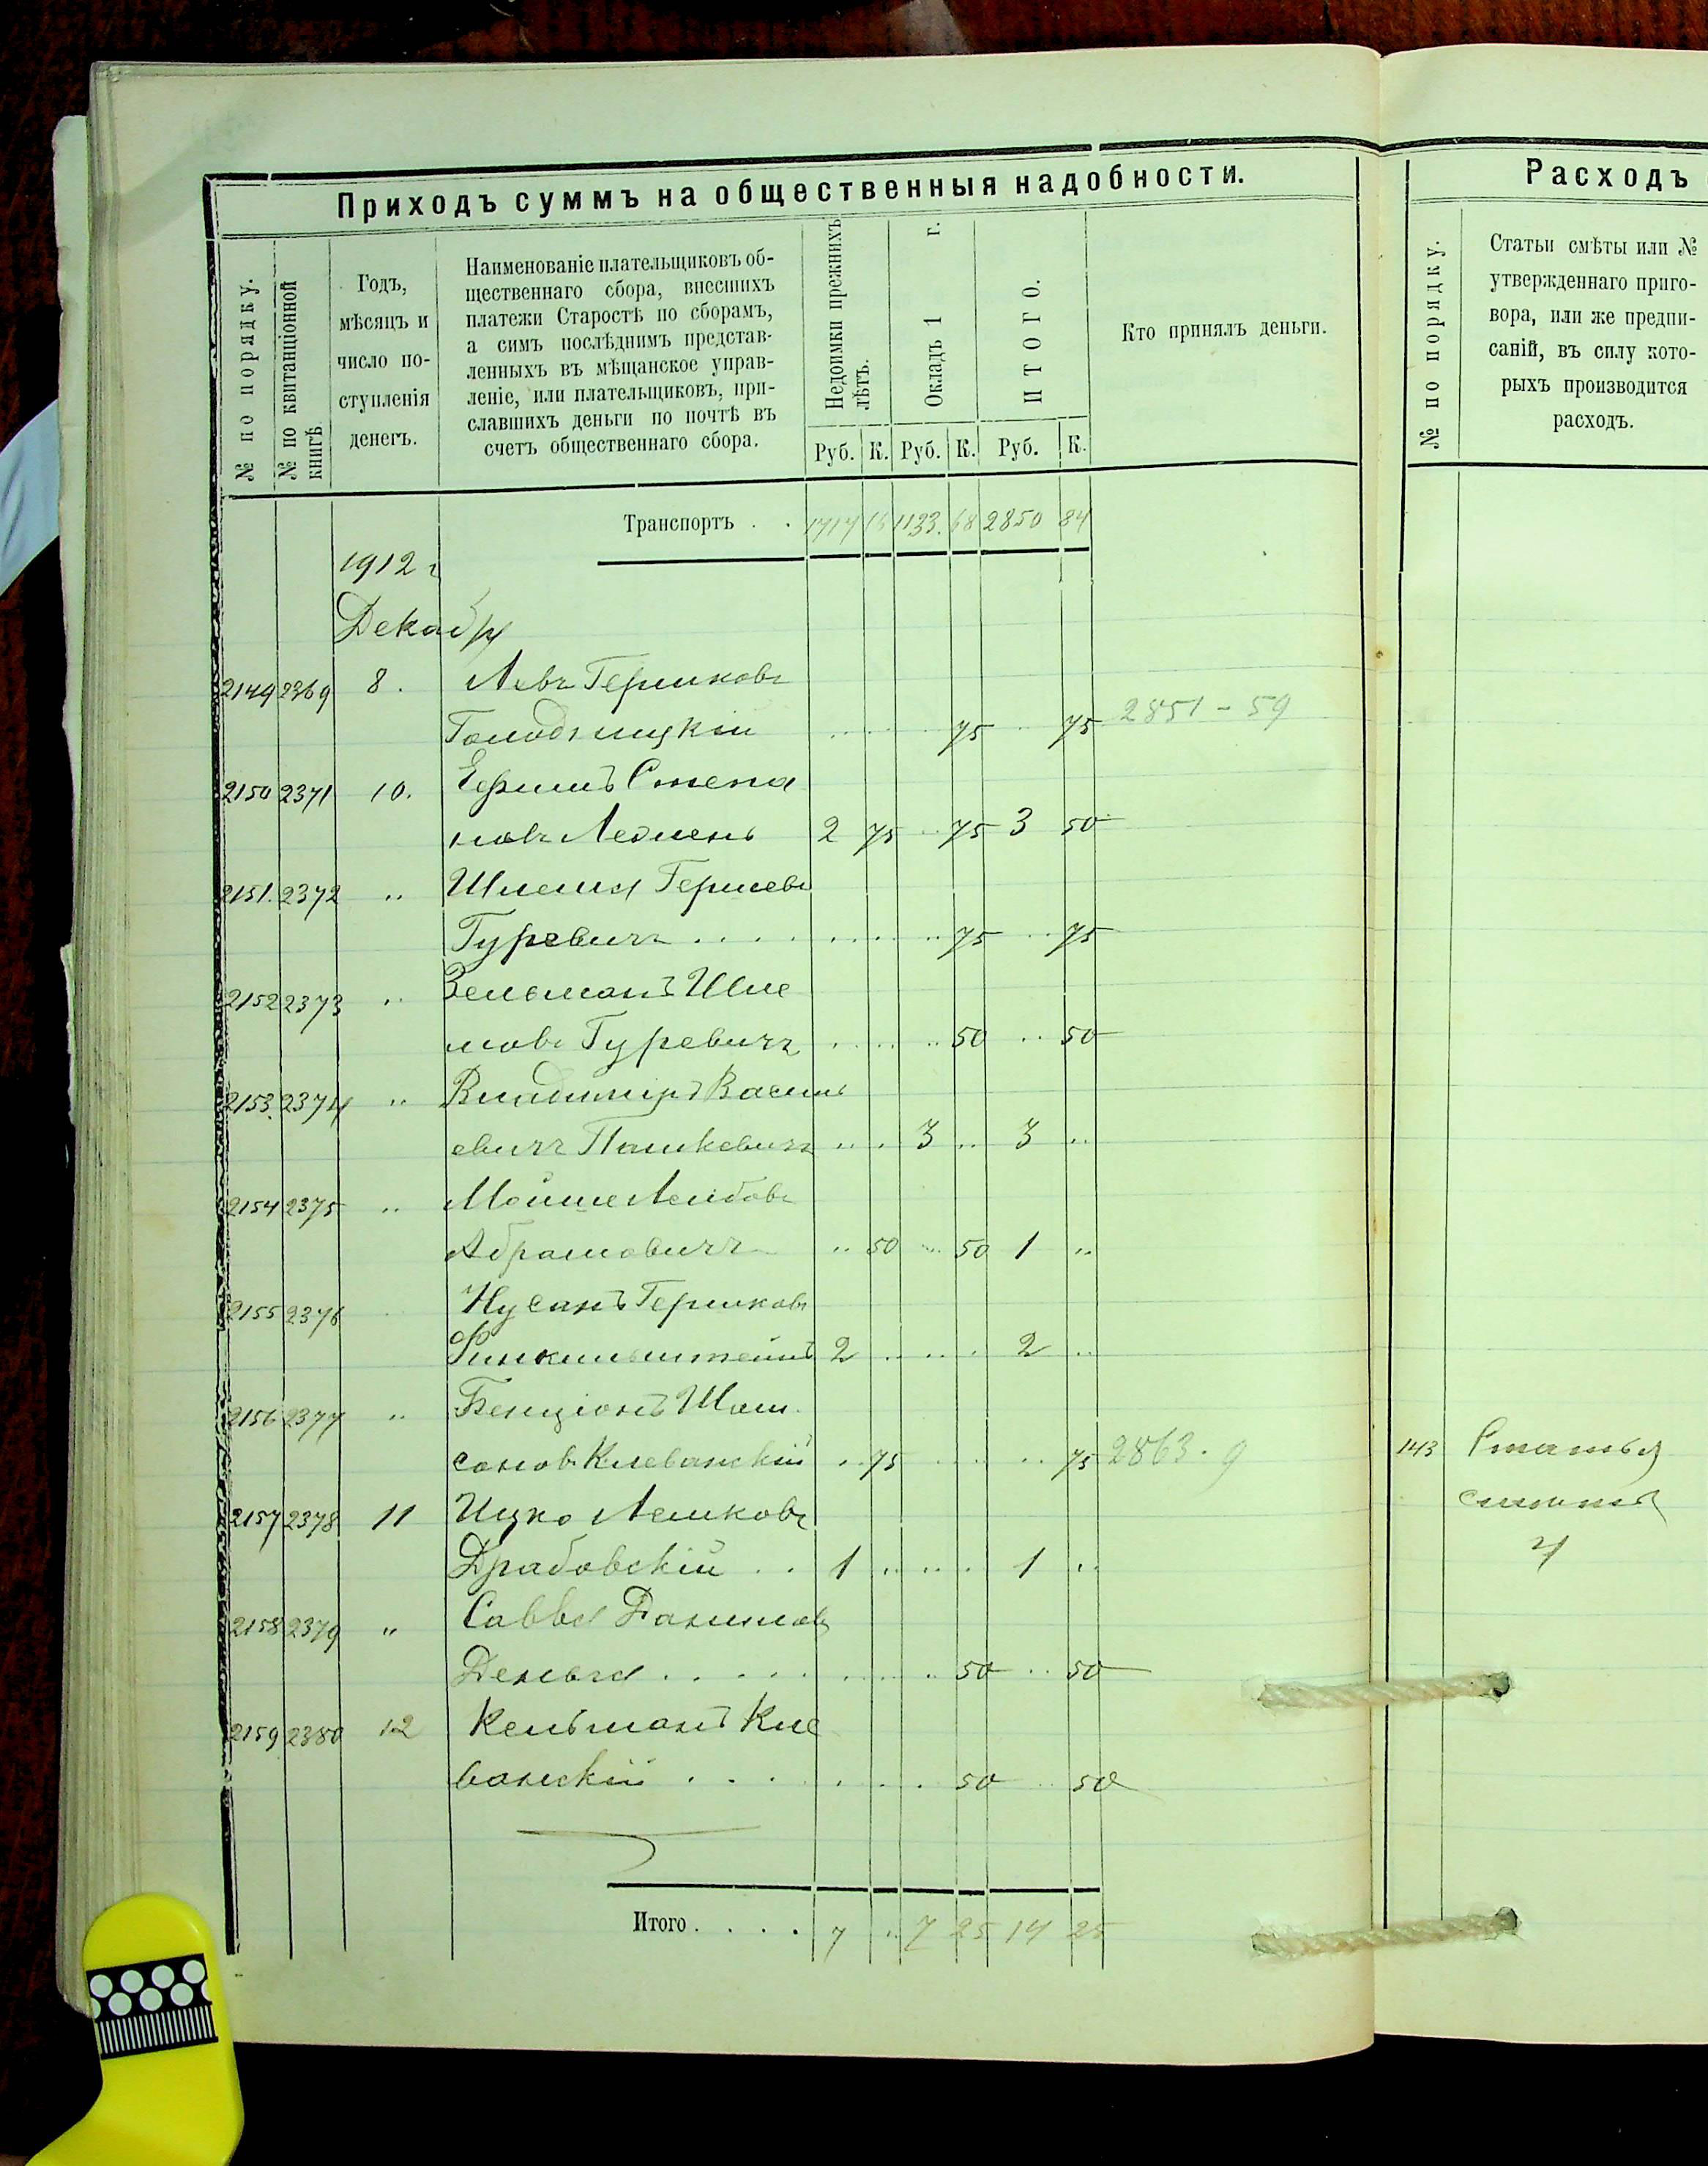 Приходъ суммъ на общественныя надобности.
№ по порядку.
№ по квитанціонной книгѣ.
Годъ,
мѣсяцъ и
число по-
ступленія
денегъ.
Наименованіе плательщиковъ об-
щественнаго сбора, внесшихъ
платежи Старостѣ по сборамъ,
а симъ послѣднимъ представ-
ленныхъ въ мѣщанское управ-
леніе, или плательщиковъ, при-
славшихъ деньги по почтѣ въ
счетъ общественнаго сбора.
Недоимки прежнихъ
лѣтъ.
Окладъ 1 г.
ИТОГО.
Руб. К. Руб. К. Руб. К.
Кто принялъ деньги.
Транспортъ . . 1717 16 1133. 68 2850 84
1912 г
Декабря
2149 2369 8. Левъ Гершковъ
75 75 2851-59
2150 2371 10. Ефимъ Степа
новъ 2 75 .. 75 3 50
2151. 2372 .. Шлема Гершевъ
Гуревичъ . . . . 75 .. 75
2152 2373 .. Зельманъ Шле
мовъ Гуревичъ .. 50 .. 50
2153. 2374 .. Владимиръ Василь
евичъ Пашкевичъ .. . 3 .. 3 ..
2154 2375 .. Мойше Лейбовъ
Абрамовичъ .. 50 .. 50 1 ..
2155 2376 Нусанъ Гершковъ
Финкельштейнъ 2 .. .. 2 ..
2156 2377 .. Бенціонъ Шам
соновъ Клеванскій .. 75 .. .. 75 2863. 9
2157 2378 11 Ицко Лейковъ
Драбовскій . . 1 .. .. 1 ..
2158 2379 " Савва Даниловъ
Деньга . . . . . 50 .. 50
2159 2380 12 Кельманъ Кле
ванскій . . . . . 50 .. 50
Итого . . . . 7 .. 7 25 14 25
Расходъ
№ по порядку.
Статьи смѣты или №
утвержденнаго приго-
вора, или же предпи-
саній, въ силу кото-
рыхъ производится
расходъ.
143 Статья
смѣты
4